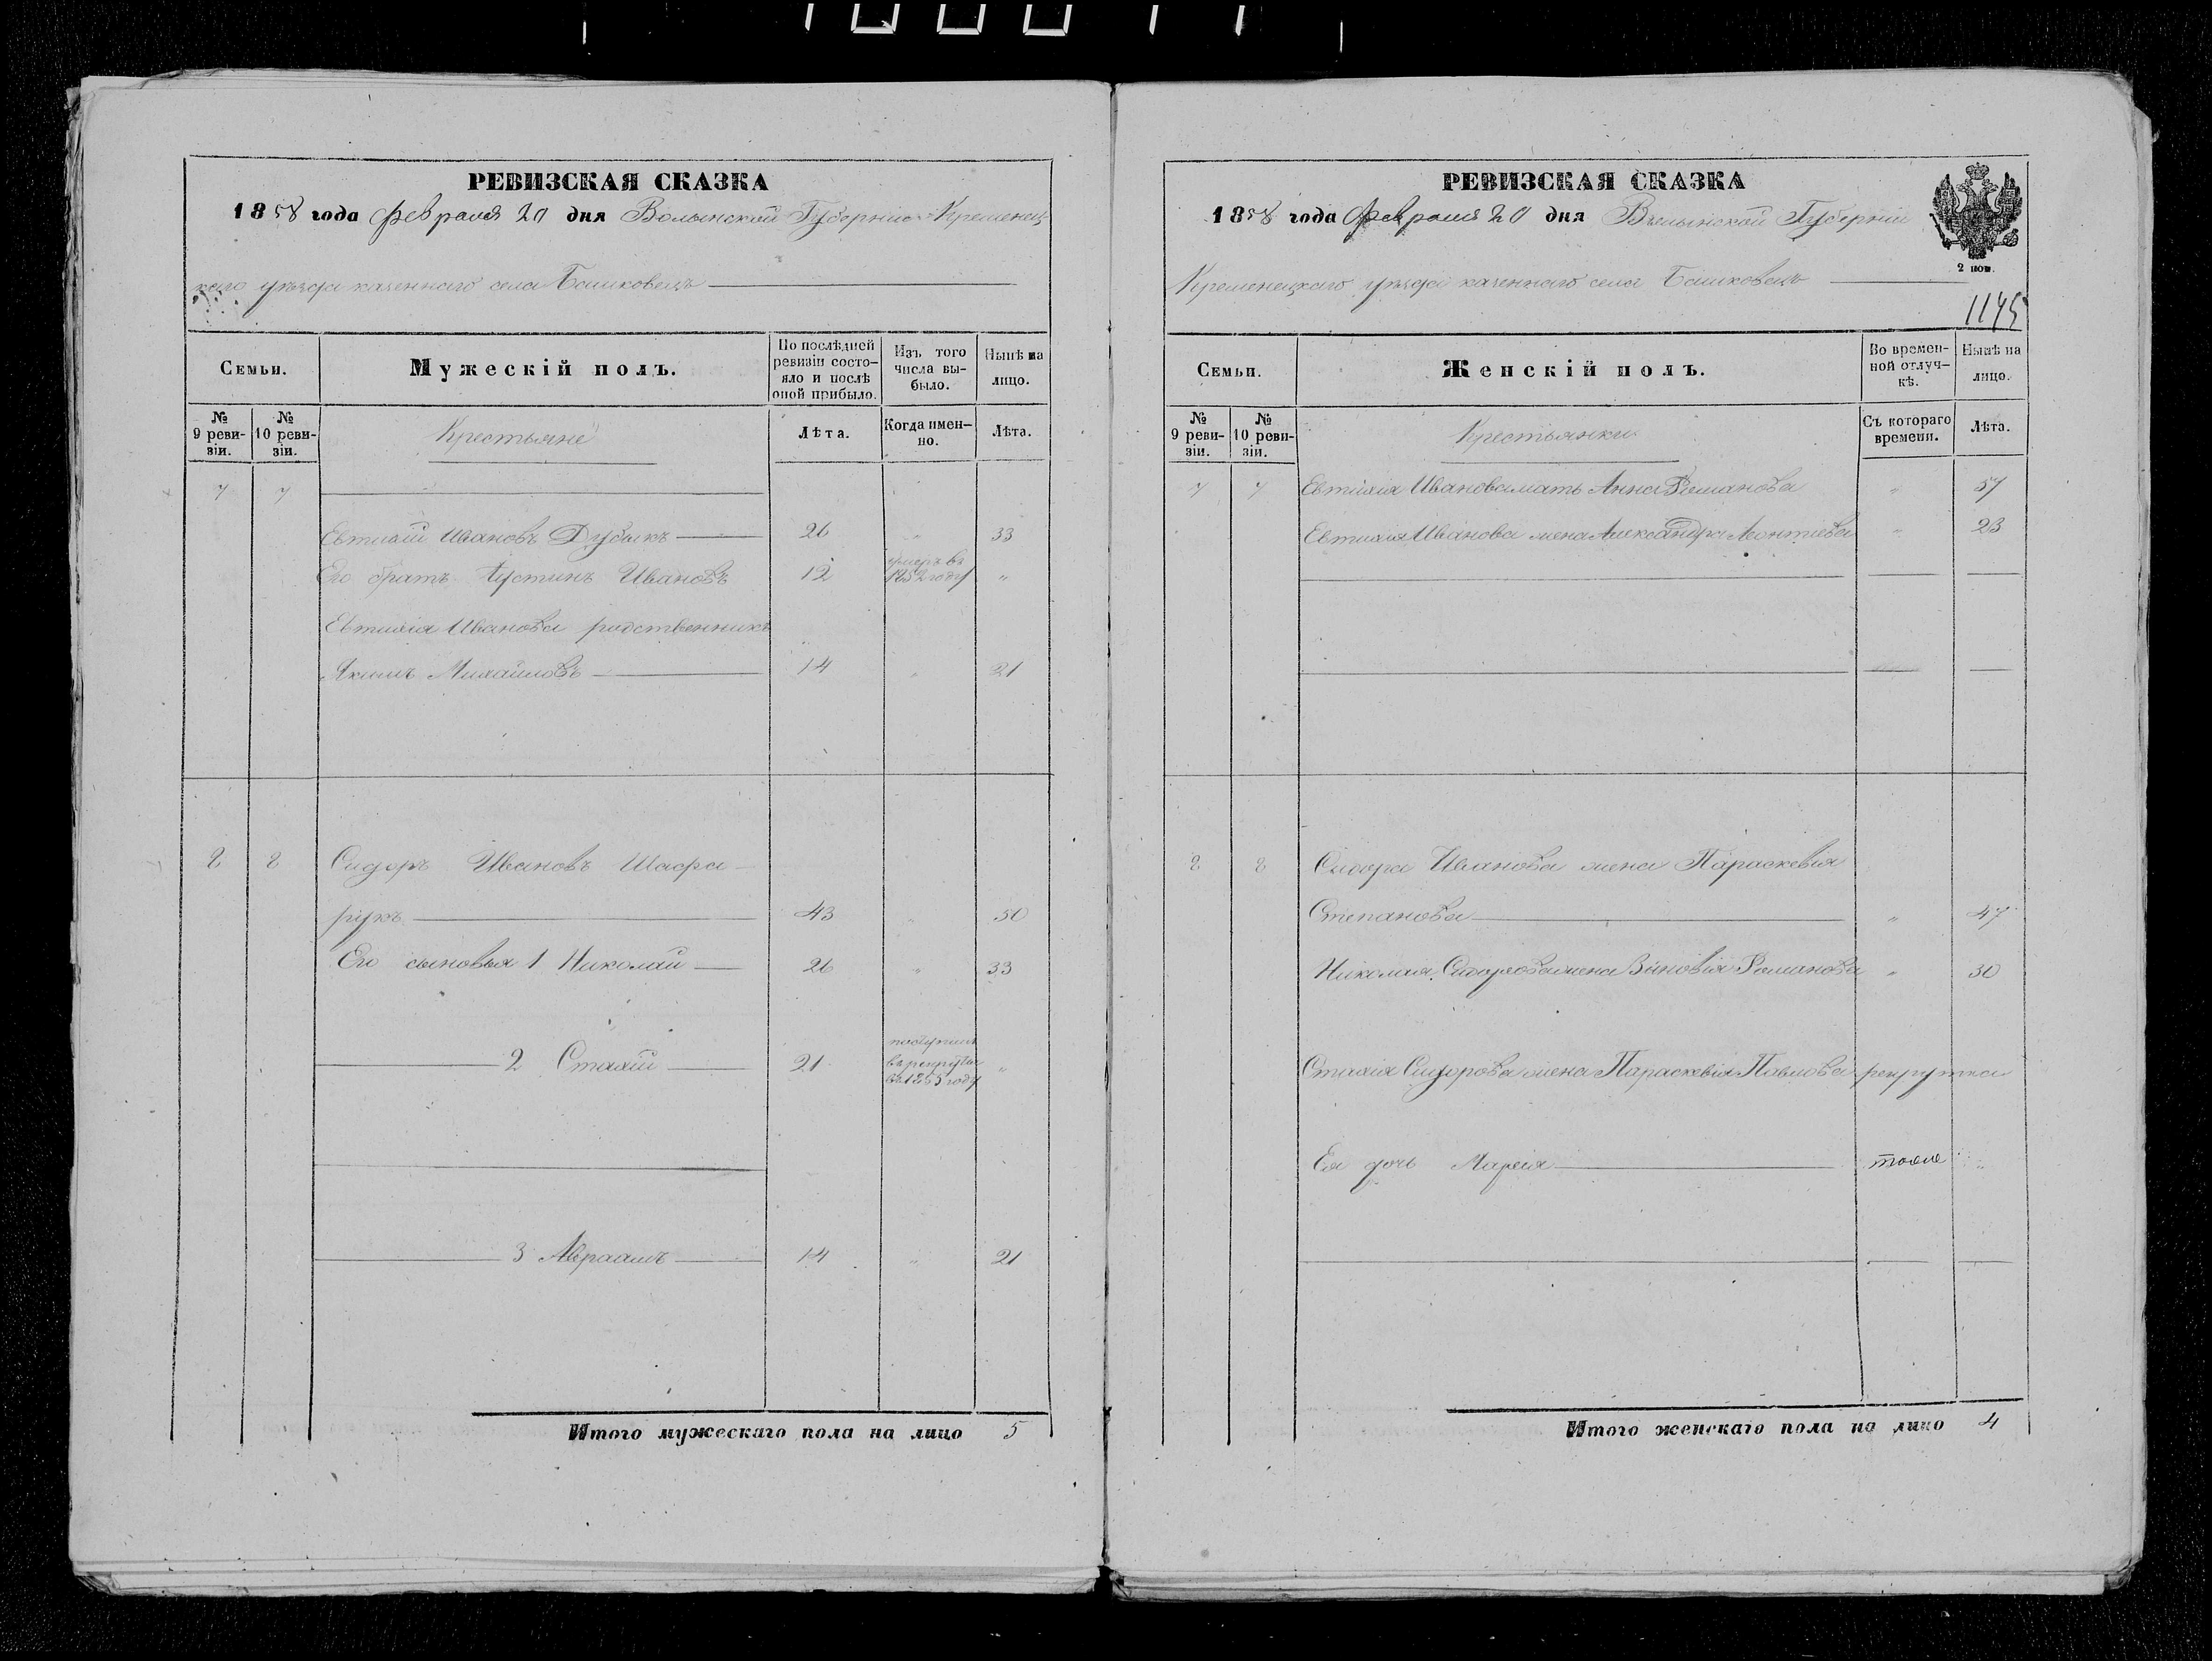 РЕВИЗСКАЯ СКАЗКА
1858 года Февраля 20 дня Волынской Губерніи Кременец
каго уѣзда казеннаго села Башковецъ
Семьи.
Мужескій полъ.
По послѣдней ревизіи состояло и послѣ оной прибыло.
Изъ того числа выбыло.
Нынѣ на лицо.
№ 9 ревизіи.
№ 10 ревизіи.
Крестьяне
Лѣта.
Когда именно.
Лѣта.
7 7
Евтихій Ивановъ Дубыкъ 26 " 33
Его братъ Іустинъ Ивановъ 12 умеръ въ 1852 году "
Евтихія Иванова родственникъ
Якимъ Михайловъ 14 " 21
8 8 Сидоръ Ивановъ Шафа-
рукъ 43 " 50
Его сыновья 1 Николай 26 " 33
2 Стахій 21 поступилъ въ рекруты въ 1855 году "
3 Авраамъ 14 " 21
Итого мужескаго пола на лицо 5
РЕВИЗСКАЯ СКАЗКА
1858 года Февраля 20 дня Волынской Губерніи
2 коп.
Кременецкаго уѣзда казеннаго села Башковецъ
1145
Семьи.
Женскій полъ.
Во временной отлучкѣ.
Нынѣ на лицо.
№ 9 ревизіи.
№ 10 ревизіи.
Крестьянки
Съ котораго времени.
Лѣта.
7 7 Евтихія Иванова мать Анна Романова " 57
Евтихія Иванова жена Александра Леонтіева " 23
8 8 Сидора Иванова жена Параскевія
Степанова " 47
Николая Сидорова жена Зиновія Романова " 30
Стахія Сидорова жена Параскевія Павлова рекрутка
Ея дочь Марія тоже "
Итого женскаго пола на лицо 4